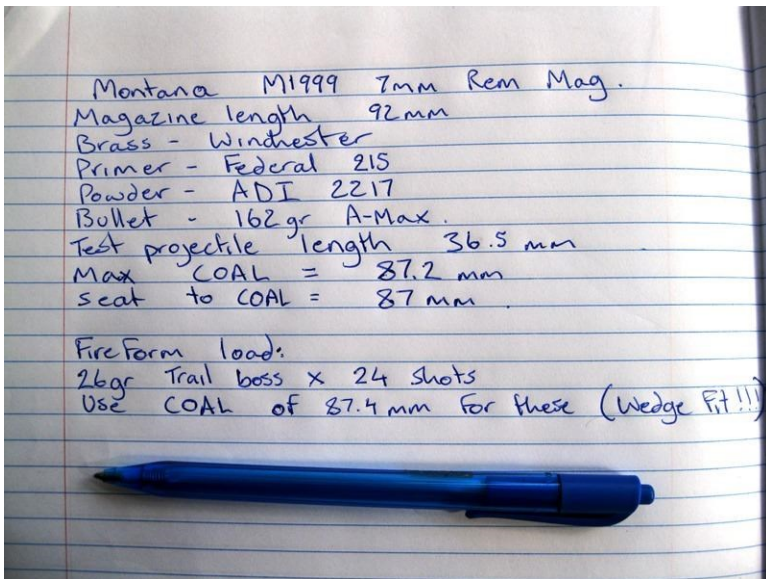 Montana M1999 7mm Rem Mag.
Magazine length 92mm
Brass - Winchester
Primer - Federal 215
Powder - ADI 2217
Bullet - 162gr A-Max.
Test projectile length 36.5 mm
Max COAL = 87.2 mm
seat to COAL = 87 mm.
Fire Form load:
26gr Trail boss x 24 shots
Use COAL of 87.4 mm for these (Wedge Fit!!!)